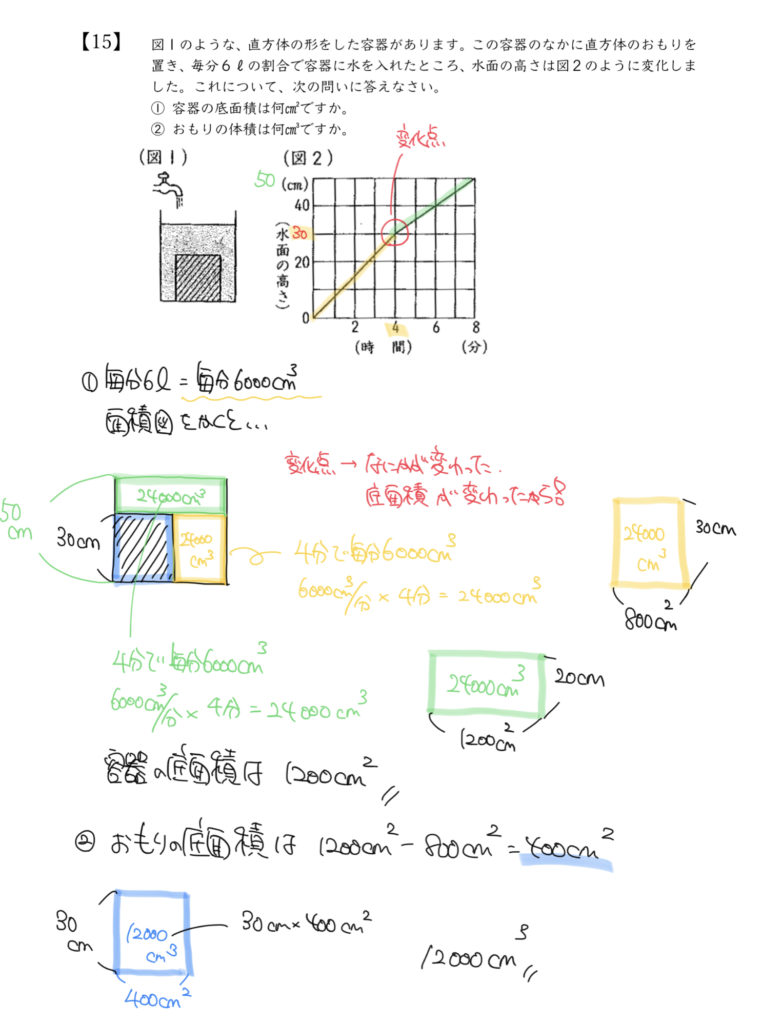 【15】 図1のような、直方体の形をした容器があります。この容器のなかに直方体のおもりを
置き、毎分6ℓの割合で容器に水を入れたところ、水面の高さは図2のように変化しま
した。これについて、次の問いに答えなさい。
① 容器の底面積は何cm²ですか。
② おもりの体積は何cm³ですか。
(図1)
(図2)
変化点
50
(cm)
40
30
20
0
(水面の高さ)
2 4 6 8
(時間) (分)
① 毎分6ℓ = 毎分6000cm³
面積図をかくと...
変化点 → なにかが変わった.
底面積が変わったから
24000cm³
50
cm
30cm
24000
cm³
4分で毎分6000cm³
6000cm³/分 × 4分 = 24000cm³
24000
cm³
30cm
800cm²
4分で毎分6000cm³
6000cm³/分 × 4分 = 24000cm³
24000cm³
20cm
1200cm²
容器の底面積は 1200cm²
② おもりの底面積は 1200cm² - 800cm² = 400cm²
30
cm
12000
cm³
30cm×400cm²
400cm²
12000cm³